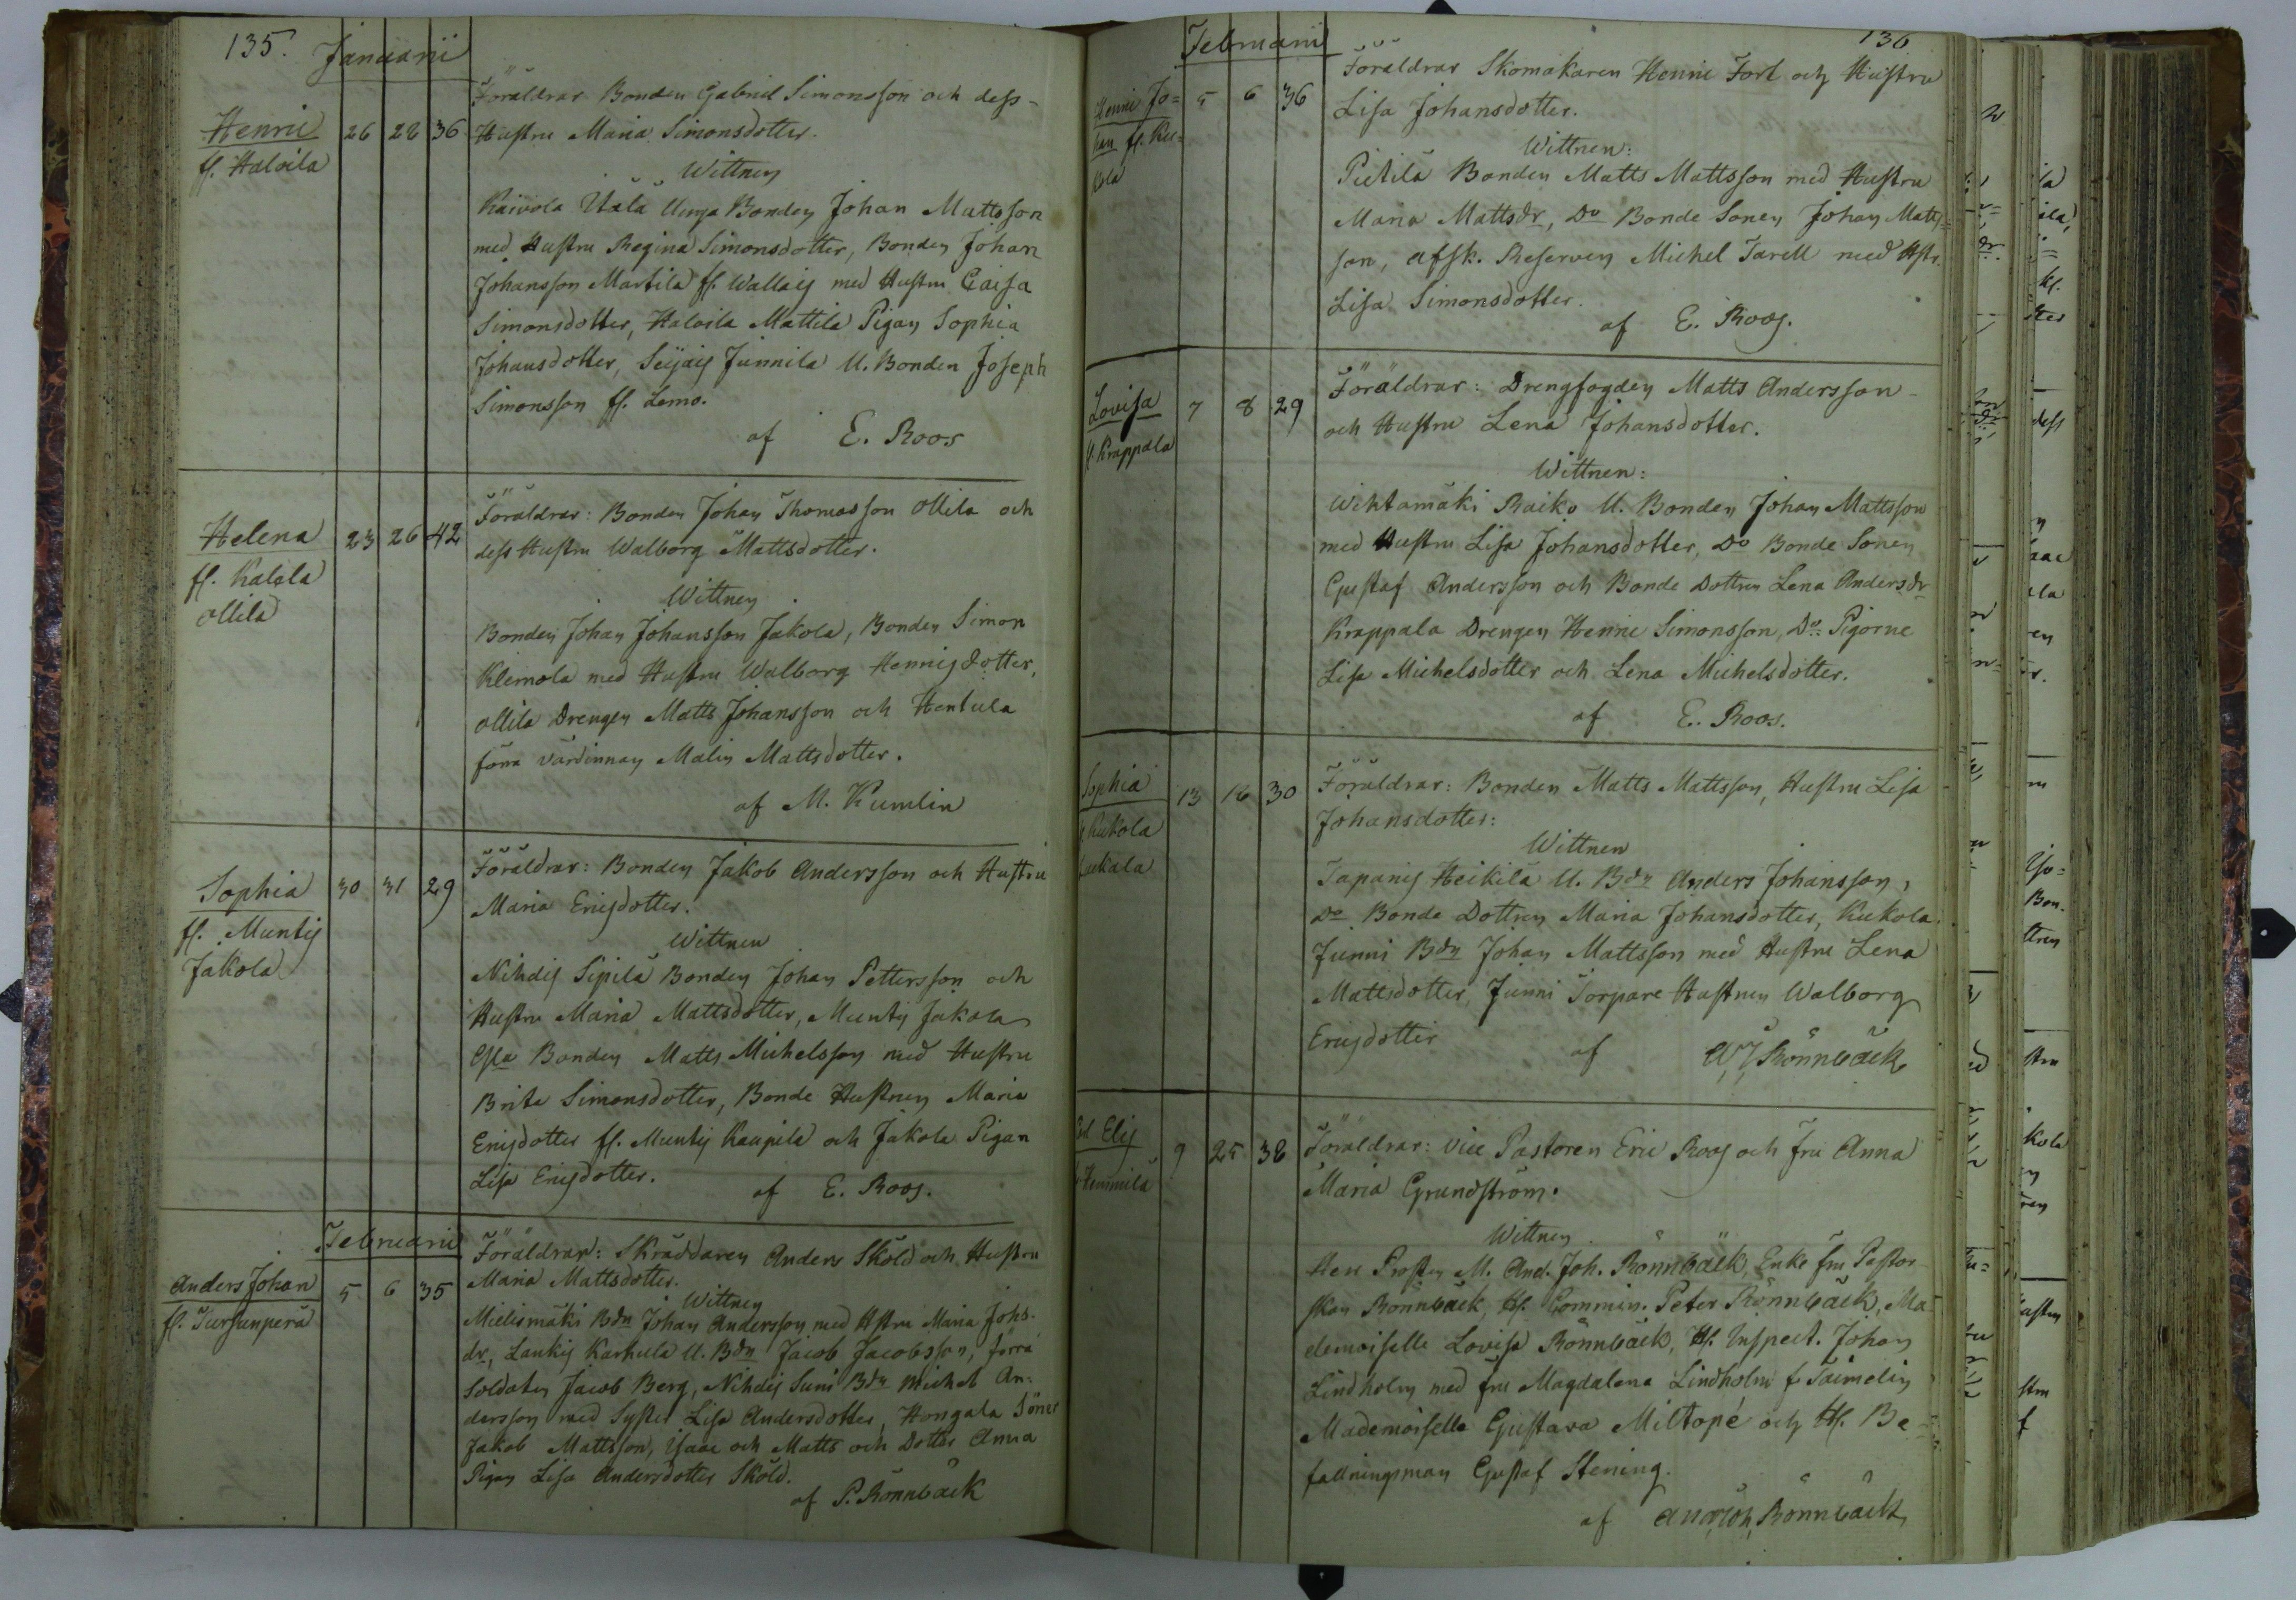 135. Januarii
Henric 26 28 36
fr. Haloila
Föräldrar Bonden Gabriel Simonsson och dess
Hustru Maria Simonsdotter.
Wittnen
Kaivola Ylälä Unga Bonden Johan Mattsson
med Hustru Regina Simonsdotter, Bonden Johan
Johansson Martila fr. Wallais med Hustru Caisa
Simonsdotter, Haloila Mattila Pigan Sophia
Johansdotter, Seijais Junnila U. Bonden Joseph
Simonsson fr. Lemo.
af E. Roos
Helena 23 26 42
fr. Kalela
Ollila
Föräldrar: Bonden Johan Thomasson Ollila och
dess Hustru Walborg Mattsdotter.
Wittnen
Bonden Johan Johansson Jakola, Bonden Simon
Klemola med Hustru Walborg Henrigsdotter,
Ollila Drengen Matts Johansson och Hentula
förra värdinnan Malin Mattsdotter.
af M. Kumlin
Sophia 30 31 29
fr. Muntis
Jakola
Föräldrar: Bonden Jakob Andersson och Hustru
Maria Ericsdotter.
Wittnen
Nihdis Sipilä Bonden Johan Pettersson och
Hustru Maria Mattsdotter, Muntis Jakola
Gla Bonden Matts Michelsson med Hustru
Brita Simonsdotter, Bonde Hustrun Maria
Ericsdotter fr. Muntis Kaupila och Jakola Pigan
Lisa Ericsdotter.
af E. Roos.
Februarii
Anders Johan 5 6 35
fr. Tursunperä
Föräldrar: Skräddaren Anders Sköld och Hustru
Maria Mattsdotter.
Wittnen
Mielismäki Bdn Johan Andersson med Hstru Maria Johs.
dr, Laukis Karhula U. Bdn Jacob Jacobsson, förra
Soldaten Jacob Berg, Nihdis Suni Bdn Michel An=
dersson med Syster Lisa Andersdotter, Hongala Söner
Jakob Mattsson, Isaac och Matts och Dotter Anna
Pigan Lisa Andersdotter Sköld.
af P. Rönnbäck
136
Februarii
Henric Jo= 5 6 36
han fr. Ku=
kola
Föräldrar Skomakaren Henric Fort och Hustru
Lisa Johansdotter.
Wittnen:
Pietilä Bonden Matts Mattsson med Hustru
Maria Mattsdr, Do Bonde Sonen Johan Matts=
son, afsk. Reserven Michel Tarell med Hstr.
Lisa Simonsdotter.
af E. Roos.
Lovisa 7 8 29
fr. Krappala
Föräldrar: Drengfogden Matts Andersson
och Hustru Lena Johansdotter.
Wittnen:
Wihtamäki Raiko U. Bonden Johan Mattsson
med Hustru Lisa Johansdotter, Do Bonde Sonen
Gustaf Andersson och Bonde Dottren Lena Andersdr
Krappala Drengen Henric Simonsson, Do Pigorne
Lisa Michelsdotter och Lena Michelsdotter.
af E. Roos.
Sophia 13 16 30
fr. Kukola
Föräldrar: Bonden Matts Mattsson, Hustru Lisa
Johansdotter:
Wittnen
Tapanis Heikilä U. Bdn Anders Johansson,
Do Bonde Dottren Maria Johansdotter, Kukola
Junni Bdn Johan Mattsson med Hustru Lena
Mattsdotter, Junni Torpare Hustrun Walborg
Ericsdotter
af Rönnbäck
Carl Elis 9 25 38
fr. Hemmilä
Föräldrar: Vice Pastoren Eric Roos och Fru Anna
Maria Grundström.
Wittnen
Herr Prosten M. And. Joh. Rönnbäck, Enke fru Pastor
skan Rönnbäck, Hr. Commin. Peter Rönnbäck, Ma
demoiselle Lovisa Rönnbäck, Hr. Inspect. Johan
Lindholm med fru Magdalena Lindholm f. Taimelin
Mademoiselle Gustava Miltopé och Hr. Be=
fallningsman Gustaf Stening.
af And. Joh. Rönnbäck